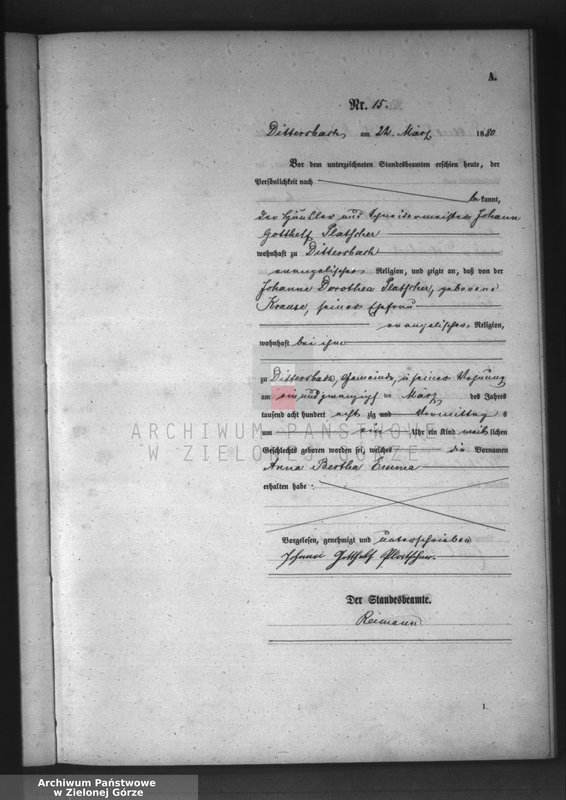 A.
Nr. 15.
Dittersbach am 22. März 1880
Vor dem unterzeichneten Standesbeamten erschien heute, der
Persönlichkeit nach
bekannt,
der Häusler und Schneidermeister Johann
Gotthelf Platscher
wohnhaft zu Dittersbach
evangelischer Religion, und zeigte an, daß von der
Johanne Dorothea Platscher, geborene
Krause, seiner Ehefrau
evangelischer Religion,
wohnhaft bei ihm
zu Dittersbach, Gemeinde, in seiner Wohnung
am ein und zwanzigsten März des Jahres
tausend acht hundert achtzig und Vormittags
um ein Uhr ein Kind weiblichen
Geschlechts geboren worden sei, welches die Vornamen
Anna Bertha Emma
erhalten habe.
Vorgelesen, genehmigt und unterschrieben
Johann Gotthelf Platscher.
Der Standesbeamte.
Reimann
1
ARCHIWUM PAŃSTWOWE
W ZIELONEJ GÓRZE
Archiwum Państwowe
w Zielonej Górze